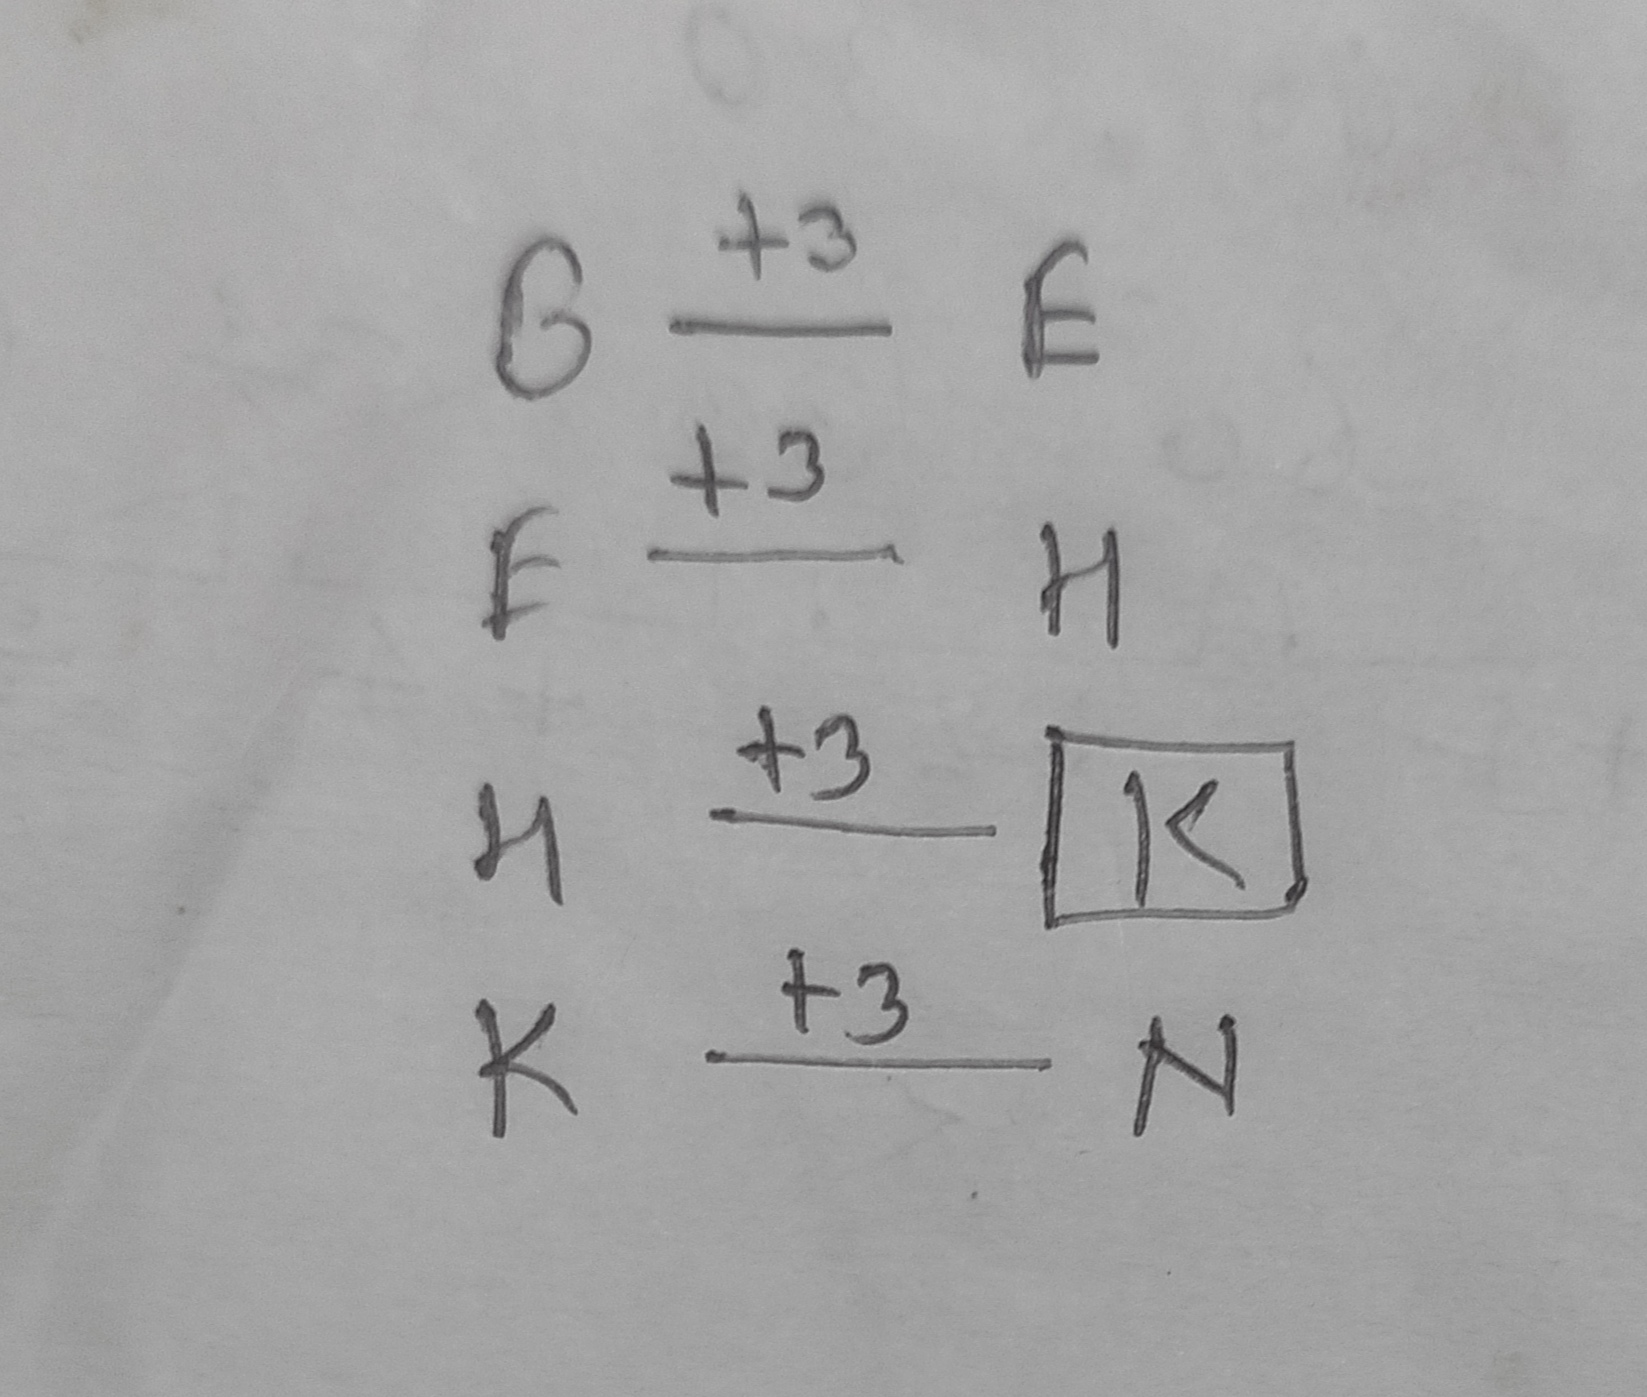 B +3 E
E +3 H
H +3 K
K +3 N